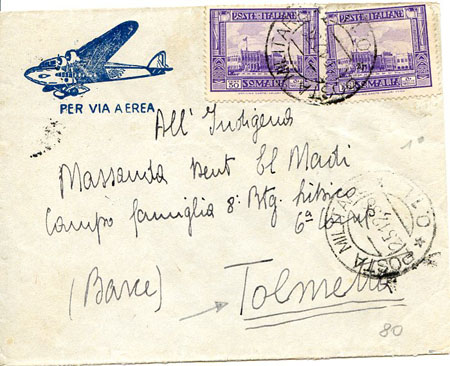 POSTE ITALIANE POSTE ITALIANE
SOMALIA SOMALIA
POSTA MILITARE
PER VIA AEREA
All' Indigena
Massauda Bent El Madi
Campo famiglia 8° Btg. Libico
6ª Comp.
POSTA MILITARE
(Barce)
Tolmetta
80